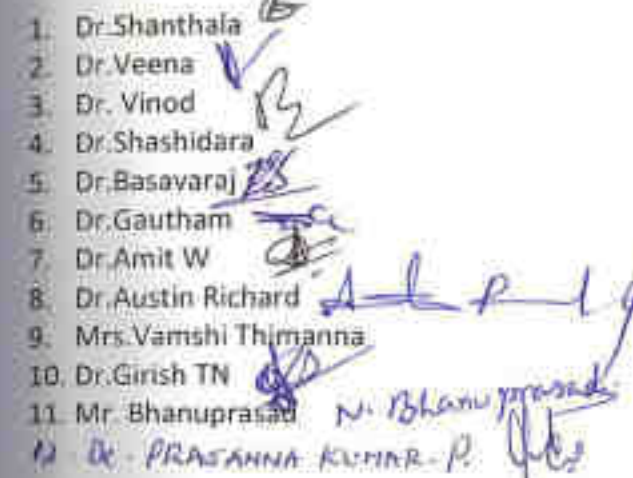 1. Dr.Shanthala
2. Dr.Veena
3. Dr. Vinod
4. Dr.Shashidara
5. Dr.Basavaraj
6. Dr.Gautham
7. Dr.Amit W
8. Dr.Austin Richard
9. Mrs.Vamshi Thimanna
10. Dr.Girish TN
11. Mr. Bhanuprasad N. Bhanuprasad
12. Dr. PRASANNA KUMAR. P.